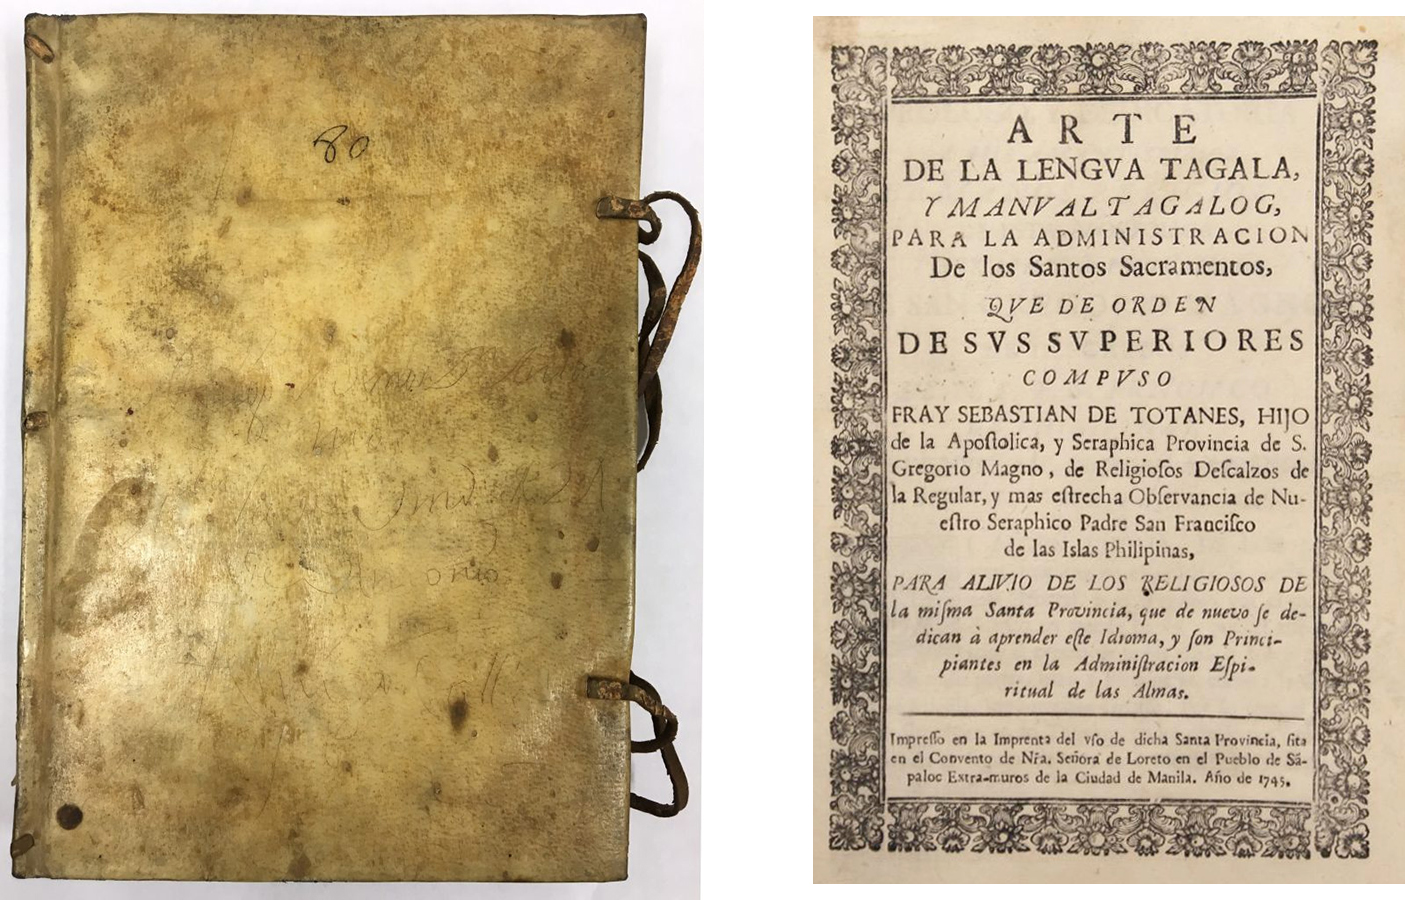 80
ARTE
DE LA LENGVA TAGALA,
Y MANVAL TAGALOG,
PARA LA ADMINISTRACION
De los Santos Sacramentos,
QVE DE ORDEN
DE SVS SVPERIORES
COMPVSO
FRAY SEBASTIAN DE TOTANES, HIJO
de la Apoſtolica, y Seraphica Provincia de S.
Gregorio Magno, de Religioſos Deſcalzos de
la Regular, y mas eſtrecha Obſervancia de Nu-
eſtro Seraphico Padre San Franciſco
de las Islas Philipinas,
PARA ALIVIO DE LOS RELIGIOSOS DE
la miſma Santa Provincia, que de nuevo ſe de-
dican à aprender eſte Idioma, y ſon Princi-
piantes en la Adminiſtracion Eſpi-
ritual de las Almas.
Impreſſo en la Imprenta del vſo de dicha Santa Provincia, ſita
en el Convento de Nr̃a. Señora de Loreto en el Pueblo de Sã-
paloc Extra-muros de la Ciudad de Manila. Año de 1745.